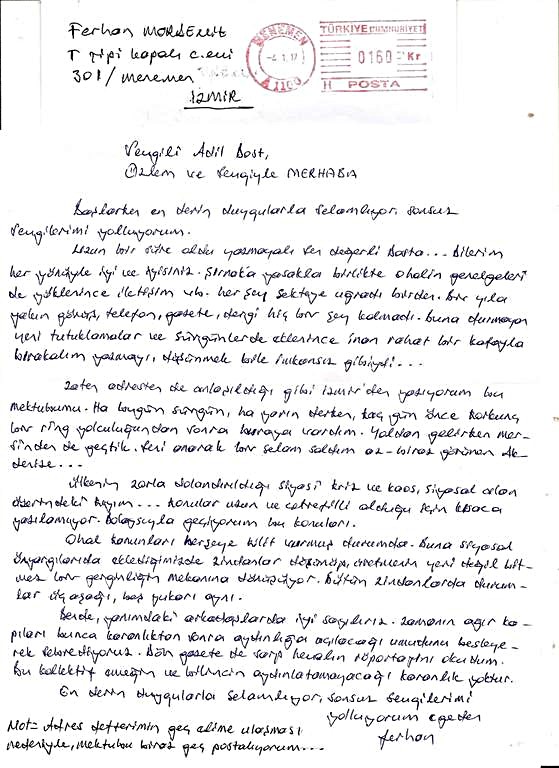 Ferhan MORDENİZ
T tipi kapalı c.evi
301/menemen
İZMİR
MENEMEN
-4.1.17
TÜRKİYE CUMHURİYETİ
0160 Kr
H POSTA
Sevgili Adil Dost,
Özlem ve sevgiyle MERHABA
Başlarken en derin duygularla selamlıyor, sonsuz
sevgilerimi yolluyorum.
Uzun bir süre oldu yazmayalı sen değerli dosta... Dilerim
her yönüyle iyi ve iyisiniz. Şırnakta yasakla birlikte ohalin genelgeleri
de yüklenince iletişim vb. her şey sekteye uğradı birden. Bir yıla
yakın görüş, telefon, gazete, dergi hiç bir şey kalmadı. Buna durmayan
yeni tutuklamalar ve sürgünlerde eklenince inan rahat bir kafayla
bırakalım yazmayı, düşünmek bile imkansız gibiydi...
Zaten adresten de anlaşıldığı gibi izmir'den yazıyorum bu
mektubumu. Ha bugün sürgün, ha yarın derken, kaç gün önce korkunç
bir ring yolculuğundan sonra buraya vardım. Yoldan gelirken mer-
sinden de geçtik. Seni anarak bir selam saldım az-biraz görünen Ak-
denize...
Ülkenin zorla dolandırıldığı siyasi kriz ve kaos, siyasal alan
üzerindeki kayım... Konular uzun ve çetrefilli olduğu için kısaca
yazılamıyor. Dolayısıyla geçiyorum bu konuları.
Ohal kanunları herşeye kılıf varmış durumda. Buna siyasal
önyargılarıda eklediğimizde zindanlar düşünüp, üretmenin yeri değil bit-
mez bir gerginliğin mekanına dönüşüyor. Bütün zindanlarda durum-
lar üç aşağı, beş yukarı aynı.
Bende, yanımdaki arkadaşlarda iyi sayılırız. Zamanın ağır ka-
pıları bunca karanlıktan sonra aydınlığa açılacağı umudunu besleye-
rek sabrediyoruz. Dün gazete de sarp hevalin röportajını okudum.
Bu kollektif emeğin ve bilincin aydınlatamayacağı karanlık yoktur.
En derin duygularla selamlıyor, sonsuz sevgilerimi
yolluyorum egeden
ferhan
Not= Adres defterimin geç elime ulaşması
nedeniyle, mektubu biraz geç postalıyorum...